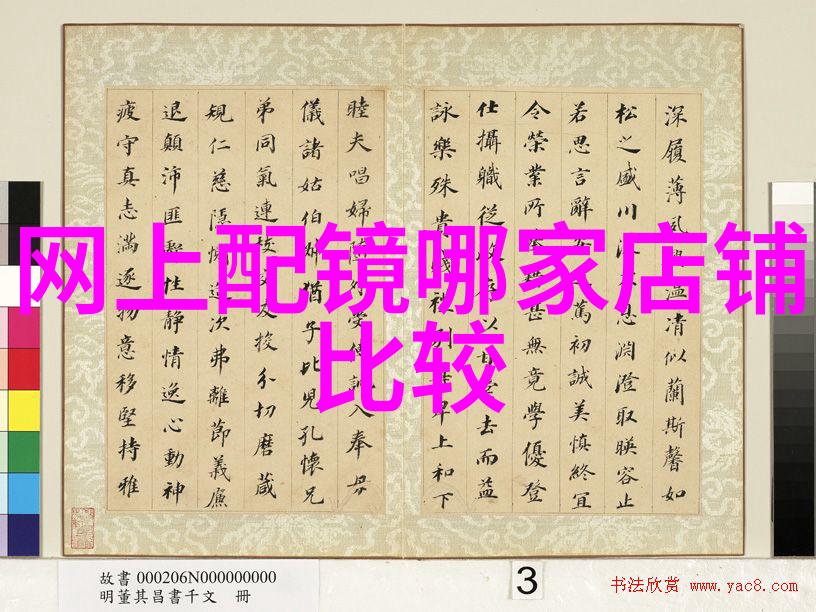 网上配镜哪家店铺
比较
深履薄夙興溫凊似蘭斯馨如
松之盛川流不息淵澄取暎容止
若思言辭安定篤初誠美慎終宜
令榮業所基籍甚無竟學優登
仕攝職從政存以甘棠去而益
詠樂殊貴賤禮別尊卑上和下
睦夫唱婦隨外受傅訓入奉母
儀諸姑伯叔猶子比兒孔懷兄
弟同氣連枝交友投分切磨箴
規仁慈隱惻造次弗離節義廉
退顛沛匪虧性靜情逸心動神
疲守真志滿逐物意移堅持雅
故書 000206N000000000
明董其昌書千文 冊
3
书法欣赏 www.yac8.com